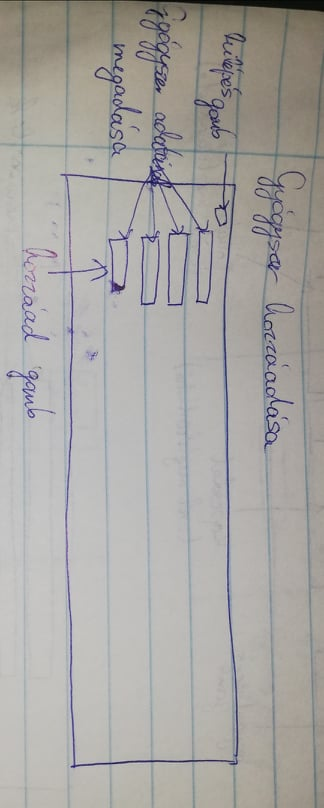 Gyógyszer hozzáadása
Kilépés gomb
Gyógyszer adatainak
megadása
hozzáad gomb